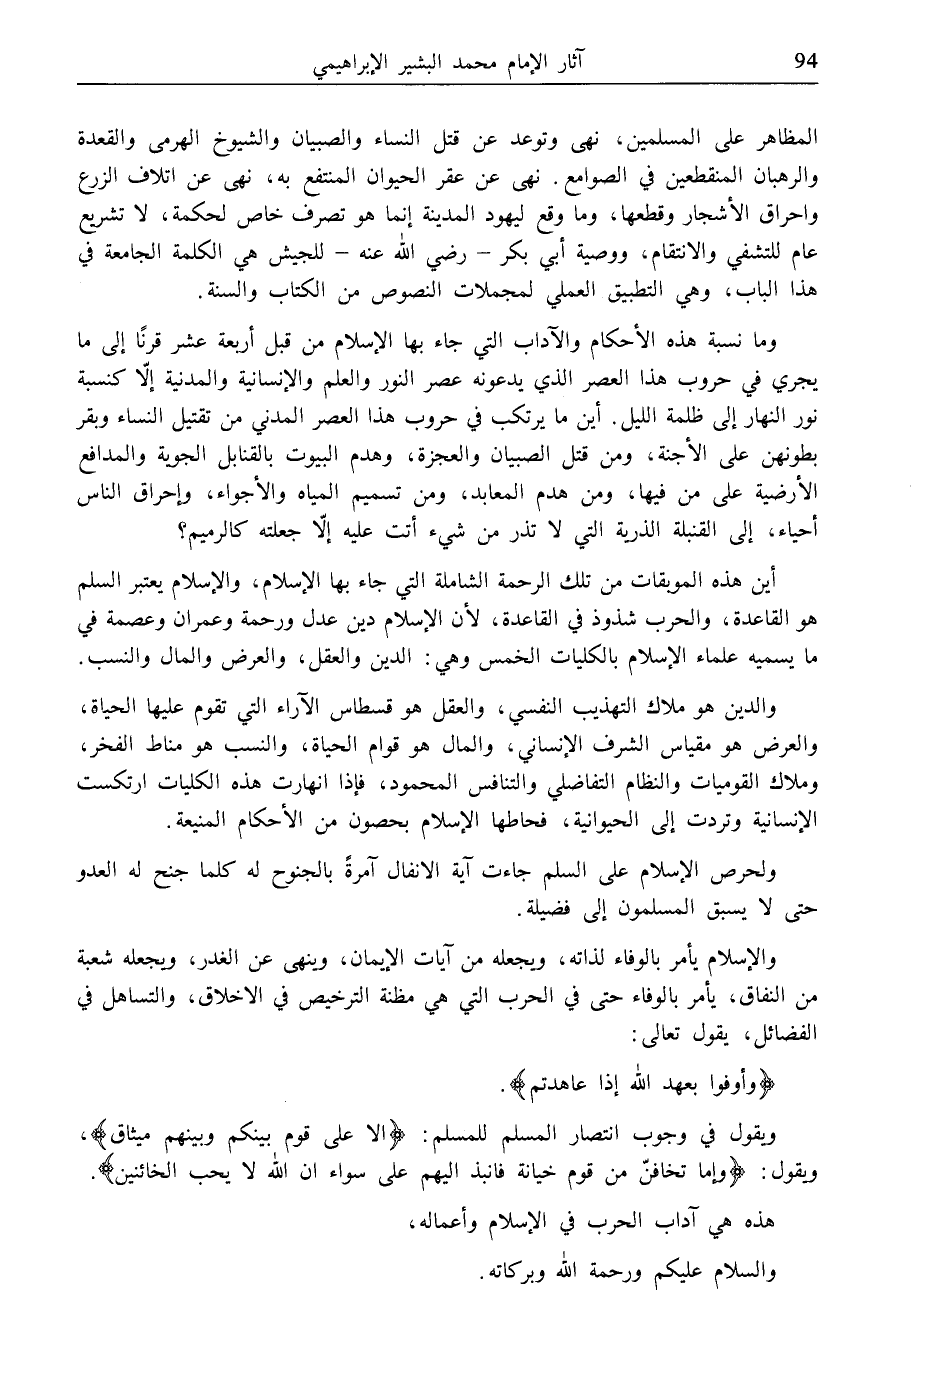 94
آثار الإمام محمد البشير الإبراهيمي
المظاهر على المسلمين، نهى وتوعد عن قتل النساء والصبيان والشيوخ الهرمى والقعدة
والرهبان المنقطعين في الصوامع. نهى عن عقر الحيوان المنتفع به، نهى عن اتلاف الزرع
واحراق الأشجار وقطعها، وما وقع ليهود المدينة إنما هو تصرف خاص لحكمة، لا تشريع
عام للتشفي والانتقام، ووصية أبي بكر – رضي الله عنه – للجيش هي الكلمة الجامعة في
هذا الباب، وهي التطبيق العملي لمجملات النصوص من الكتاب والسنة.
وما نسبة هذه الأحكام والآداب التي جاء بها الإسلام من قبل أربعة عشر قرنًا إلى ما
يجري في حروب هذا العصر الذي يدعونه عصر النور والعلم والإنسانية والمدنية إلّا كنسبة
نور النهار إلى ظلمة الليل. أين ما يرتكب في حروب هذا العصر المدني من تقتيل النساء وبقر
بطونهن على الأجنة، ومن قتل الصبيان والعجزة، وهدم البيوت بالقنابل الجوية والمدافع
الأرضية على من فيها، ومن هدم المعابد، ومن تسميم المياه والأجواء، وإحراق الناس
أحياء، إلى القنبلة الذرية التي لا تذر من شيء أتت عليه إلّا جعلته كالرميم؟
أين هذه الموبقات من تلك الرحمة الشاملة التي جاء بها الإسلام، والإسلام يعتبر السلم
هو القاعدة، والحرب شذوذ في القاعدة، لأن الإسلام دين عدل ورحمة وعمران وعصمة في
ما يسميه علماء الإسلام بالكليات الخمس وهي: الدين والعقل، والعرض والمال والنسب.
والدين هو ملاك التهذيب النفسي، والعقل هو قسطاس الآراء التي تقوم عليها الحياة،
والعرض هو مقياس الشرف الإنساني، والمال هو قوام الحياة، والنسب هو مناط الفخر،
وملاك القوميات والنظام التفاضلي والتنافس المحمود، فإذا انهارت هذه الكليات ارتكست
الإنسانية وتردت إلى الحيوانية، فحاطها الإسلام بحصون من الأحكام المنيعة.
ولحرص الإسلام على السلم جاءت آية الانفال آمرةً بالجنوح له كلما جنح له العدو
حتى لا يسبق المسلمون إلى فضيلة.
والإسلام يأمر بالوفاء لذاته، ويجعله من آيات الإيمان، وينهى عن الغدر، ويجعله شعبة
من النفاق، يأمر بالوفاء حتى في الحرب التي هي مظنة الترخيص في الاخلاق، والتساهل في
الفضائل، يقول تعالى:
﴿وأوفوا بعهد الله إذا عاهدتم﴾.
ويقول في وجوب انتصار المسلم للمسلم: ﴿الا على قوم بينكم وبينهم ميثاق﴾،
ويقول: ﴿وإما تخافنّ من قوم خيانة فانبذ اليهم على سواء ان الله لا يحب الخائنين﴾.
هذه هي آداب الحرب في الإسلام وأعماله،
والسلام عليكم ورحمة الله وبركاته.